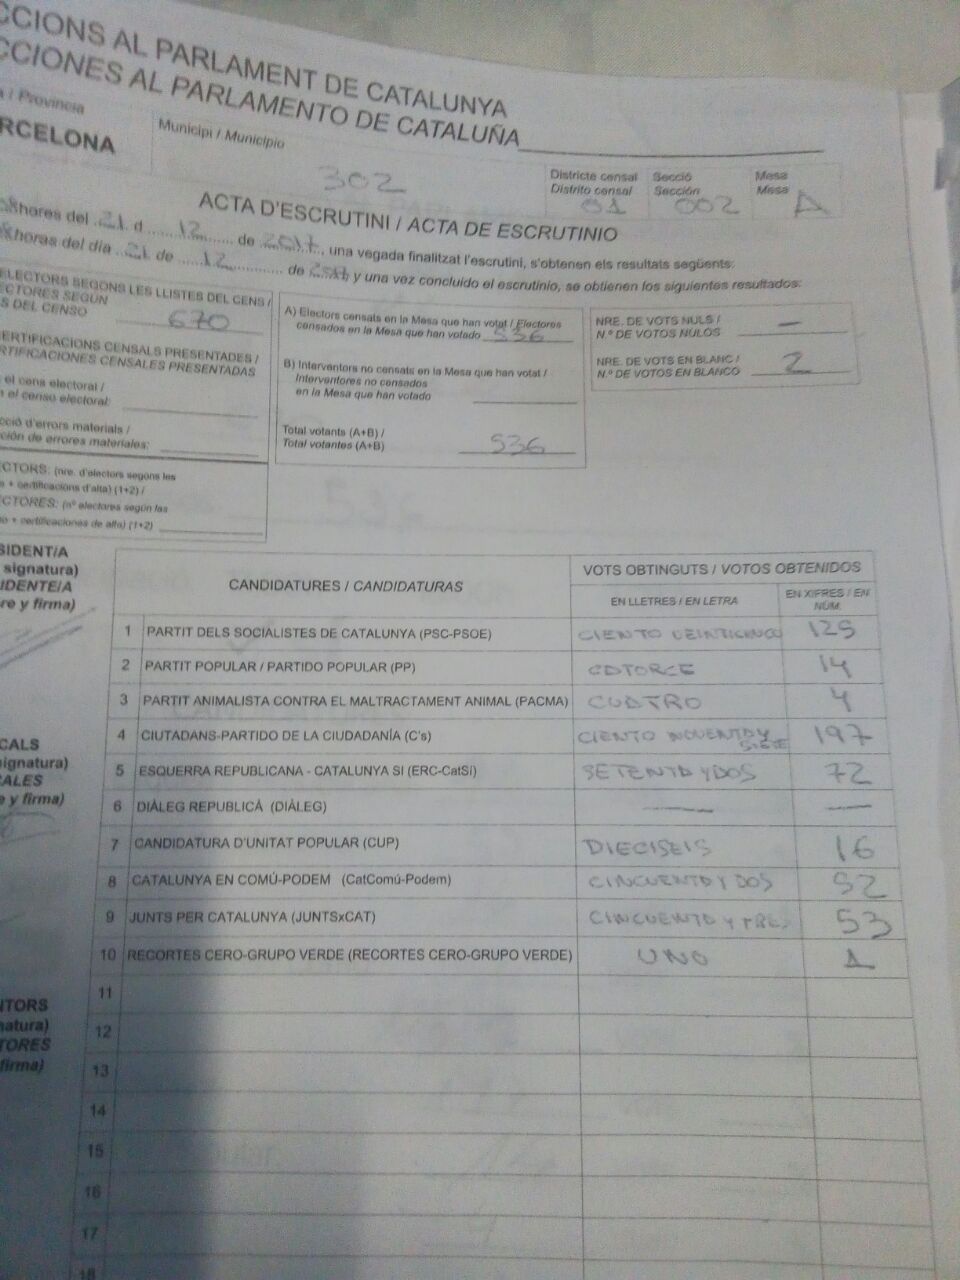 CCIONS AL PARLAMENT DE CATALUNYA
CCIONES AL PARLAMENTO DE CATALUÑA
a / Provincia
RCELONA
Municipi / Municipio
302
Districte censal
Distrito censal
01
Secció
Sección
002
Mesa
Mesa
A
ACTA D'ESCRUTINI / ACTA DE ESCRUTINIO
hores del 21 d 12 de 2017, una vegada finalitzat l'escrutini, s'obtenen els resultats següents:
horas del día 21 de 12 de, y una vez concluido el escrutinio, se obtienen los siguientes resultados:
ELECTORS SEGONS LES LLISTES DEL CENS /
ECTORES SEGÚN
S DEL CENSO 670
ERTIFICACIONS CENSALS PRESENTADES /
RTIFICACIONES CENSALES PRESENTADAS
el cens electoral /
n el censo electoral:
cció d'errors materials /
ción de errores materiales:
CTORS: (nre. d'electors segons les
+ certificacions d'alta) (1+2) /
CTORES: (nº electores según las
o + certificaciones de alta) (1+2)
A) Electors censats en la Mesa que han votat / Electores
censados en la Mesa que han votado 536
B) Interventors no censats en la Mesa que han votat /
Interventores no censados
en la Mesa que han votado
Total votants (A+B) /
Total votantes (A+B) 536
NRE. DE VOTS NULS /
N.º DE VOTOS NULOS —
NRE. DE VOTS EN BLANC /
N.º DE VOTOS EN BLANCO 2
SIDENT/A
signatura)
IDENTE/A
re y firma)
CALS
ignatura)
ALES
e y firma)
NTORS
natura)
TORES
firma)
CANDIDATURES / CANDIDATURAS
VOTS OBTINGUTS / VOTOS OBTENIDOS
EN LLETRES / EN LETRA
EN XIFRES / EN
NÚM.
1 PARTIT DELS SOCIALISTES DE CATALUNYA (PSC-PSOE) CIENTO VEINTICINCO 125
2 PARTIT POPULAR / PARTIDO POPULAR (PP) CATORCE 14
3 PARTIT ANIMALISTA CONTRA EL MALTRACTAMENT ANIMAL (PACMA) CUATRO 4
4 CIUTADANS-PARTIDO DE LA CIUDADANÍA (C's) CIENTO NOVENTA Y SIETE 197
5 ESQUERRA REPUBLICANA - CATALUNYA SI (ERC-CatSí) SETENTA Y DOS 72
6 DIÀLEG REPUBLICÀ (DIÀLEG) — —
7 CANDIDATURA D'UNITAT POPULAR (CUP) DIECISEIS 16
8 CATALUNYA EN COMÚ-PODEM (CatComú-Podem) CINCUENTA Y DOS 52
9 JUNTS PER CATALUNYA (JUNTSxCAT) CINCUENTA Y TRES 53
10 RECORTES CERO-GRUPO VERDE (RECORTES CERO-GRUPO VERDE) UNO 1
11
12
13
14
15
16
17
18